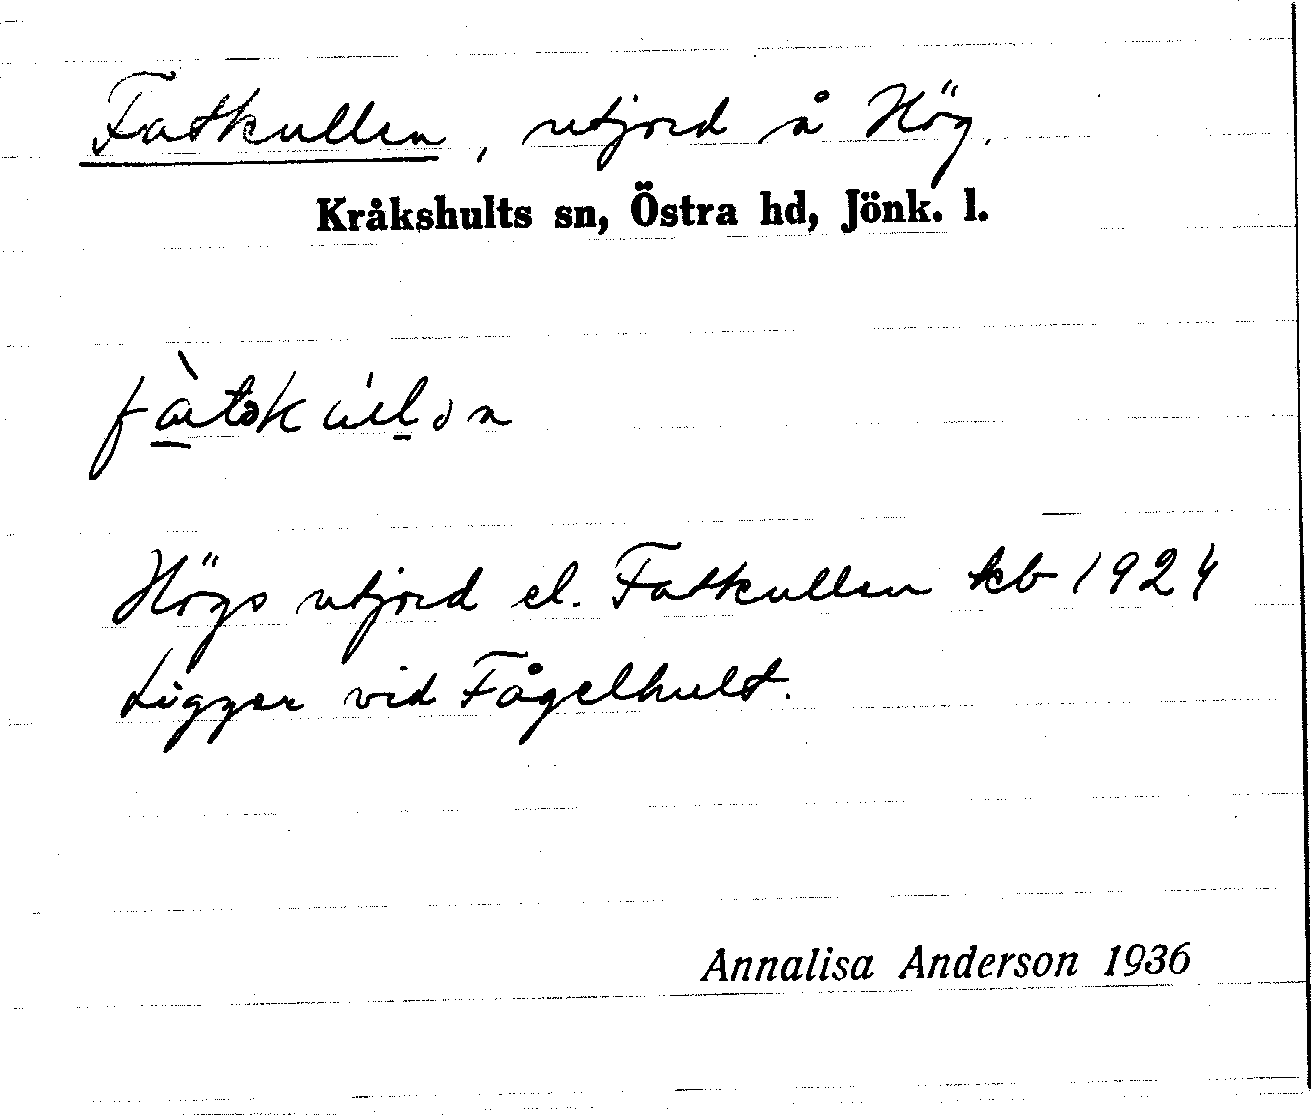 Fatkullen, utjord å Hög.
Kråkshults sn, Östra hd, Jönk. l.
Högs utjord el. Fatkullen kb 1924
Ligger vid Fågelhult.
Annalisa Anderson 1936